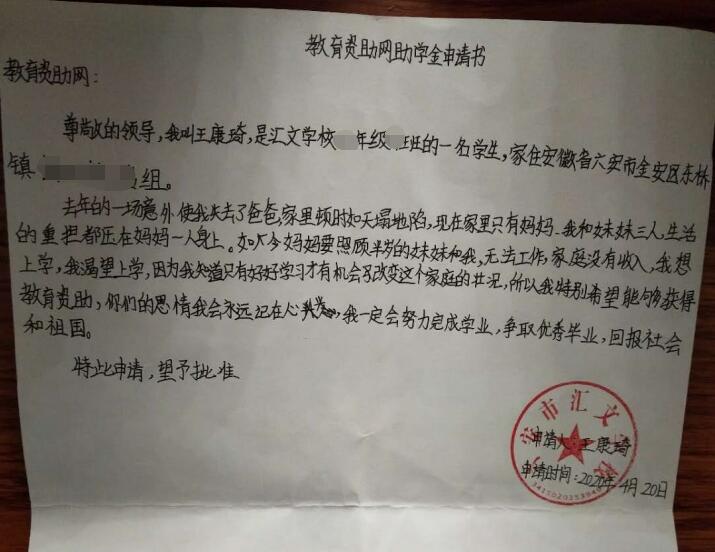 教育资助网助学金申请书
教育资助网：
尊敬的领导，我叫王康琦，是汇文学校年级班的一名学生，家住安徽省六安市金安区东桥
镇组。
去年的一场意外使我失去了爸爸，家里顿时如天塌地陷，现在家里只有妈妈、我和妹妹三人，生活
的重担都压在妈妈一人身上。如今妈妈要照顾半岁的妹妹和我，无法工作，家庭没有收入，我想
上学，我渴望上学，因为我知道只有好好学习才有机会改变这个家庭的状况，所以我特别希望能够获得
教育资助，你们的恩情我会永远记在心，我一定会努力完成学业，争取优秀毕业，回报社会
和祖国。
特此申请，望予批准
安市汇文学校
申请人：王康琦
申请时间：2020年4月20日